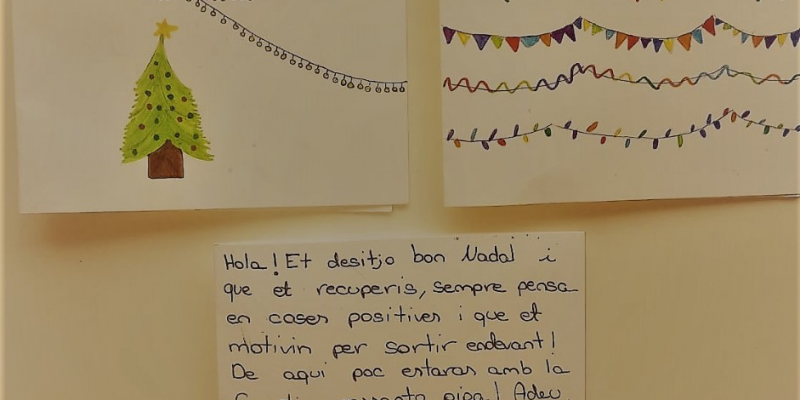 Hola! Et desitjo bon Nadal i
que et recuperis, sempre pensa
en coses positives i que et
motivin per sortir endevant!
De aqui poc estaras amb la
pipa! Adeu